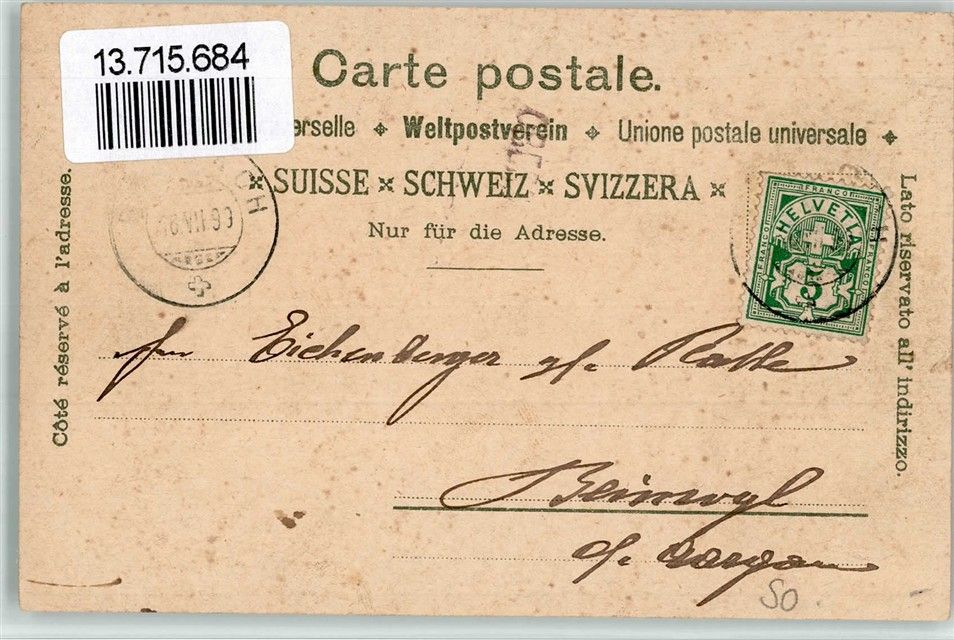 13.715.684
Carte postale.
erselle Weltpostverein Unione postale universale
SUISSE SCHWEIZ SVIZZERA
Nur für die Adresse.
Côté réservé à l'adresse.
Lato riservato all' indirizzo.
FRANCO
HELVETIA
FRANCO
FRANCO
5
Eichenberger
Beinwyl
Aargau
SO